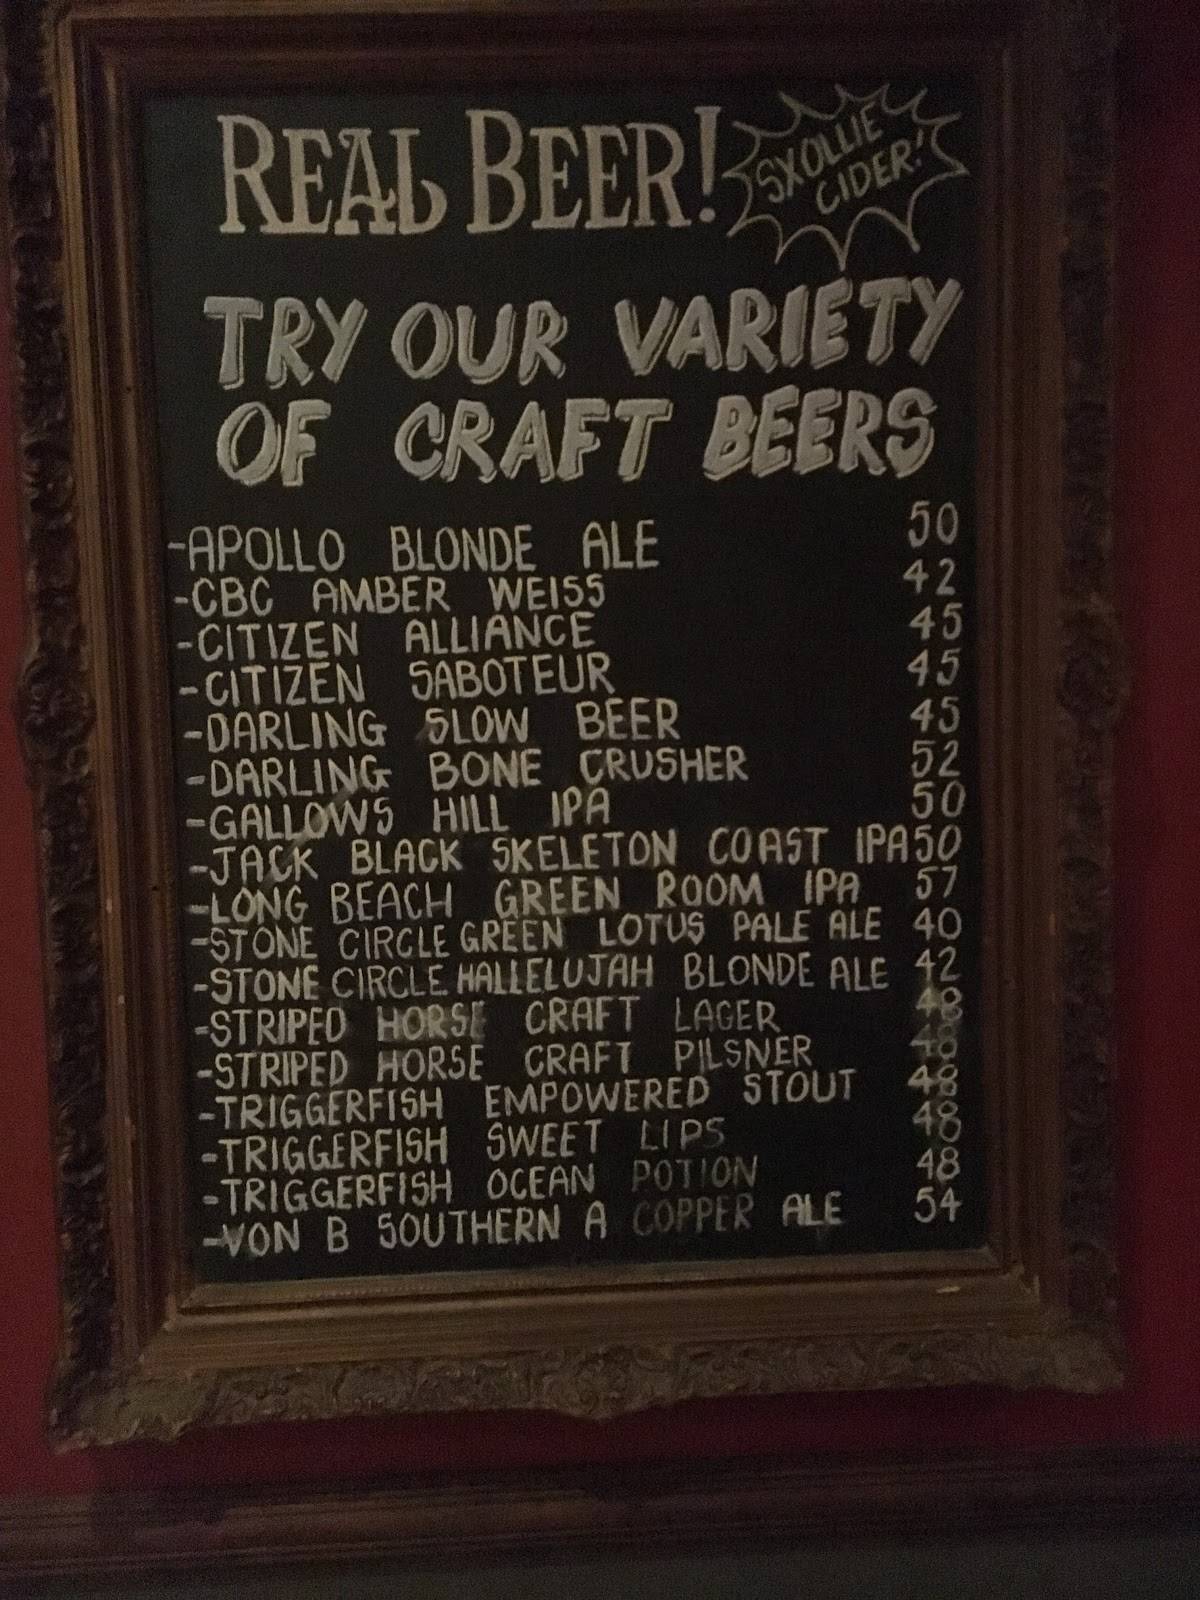 REAL BEER!
SXOLLIE
CIDER!
TRY OUR VARIETY
OF CRAFT BEERS
-APOLLO BLONDE ALE 50
-CBC AMBER WEISS 42
-CITIZEN ALLIANCE 45
-CITIZEN SABOTEUR 45
-DARLING SLOW BEER 45
-DARLING BONE CRUSHER 52
-GALLOWS HILL IPA 50
-JACK BLACK SKELETON COAST IPA 50
-LONG BEACH GREEN ROOM IPA 57
-STONE CIRCLE GREEN LOTUS PALE ALE 40
-STONE CIRCLE HALLELUJAH BLONDE ALE 42
-STRIPED HORSE CRAFT LAGER 48
-STRIPED HORSE CRAFT PILSNER 48
-TRIGGERFISH EMPOWERED STOUT 48
-TRIGGERFISH SWEET LIPS 48
-TRIGGERFISH OCEAN POTION 48
-VON B SOUTHERN A COPPER ALE 54